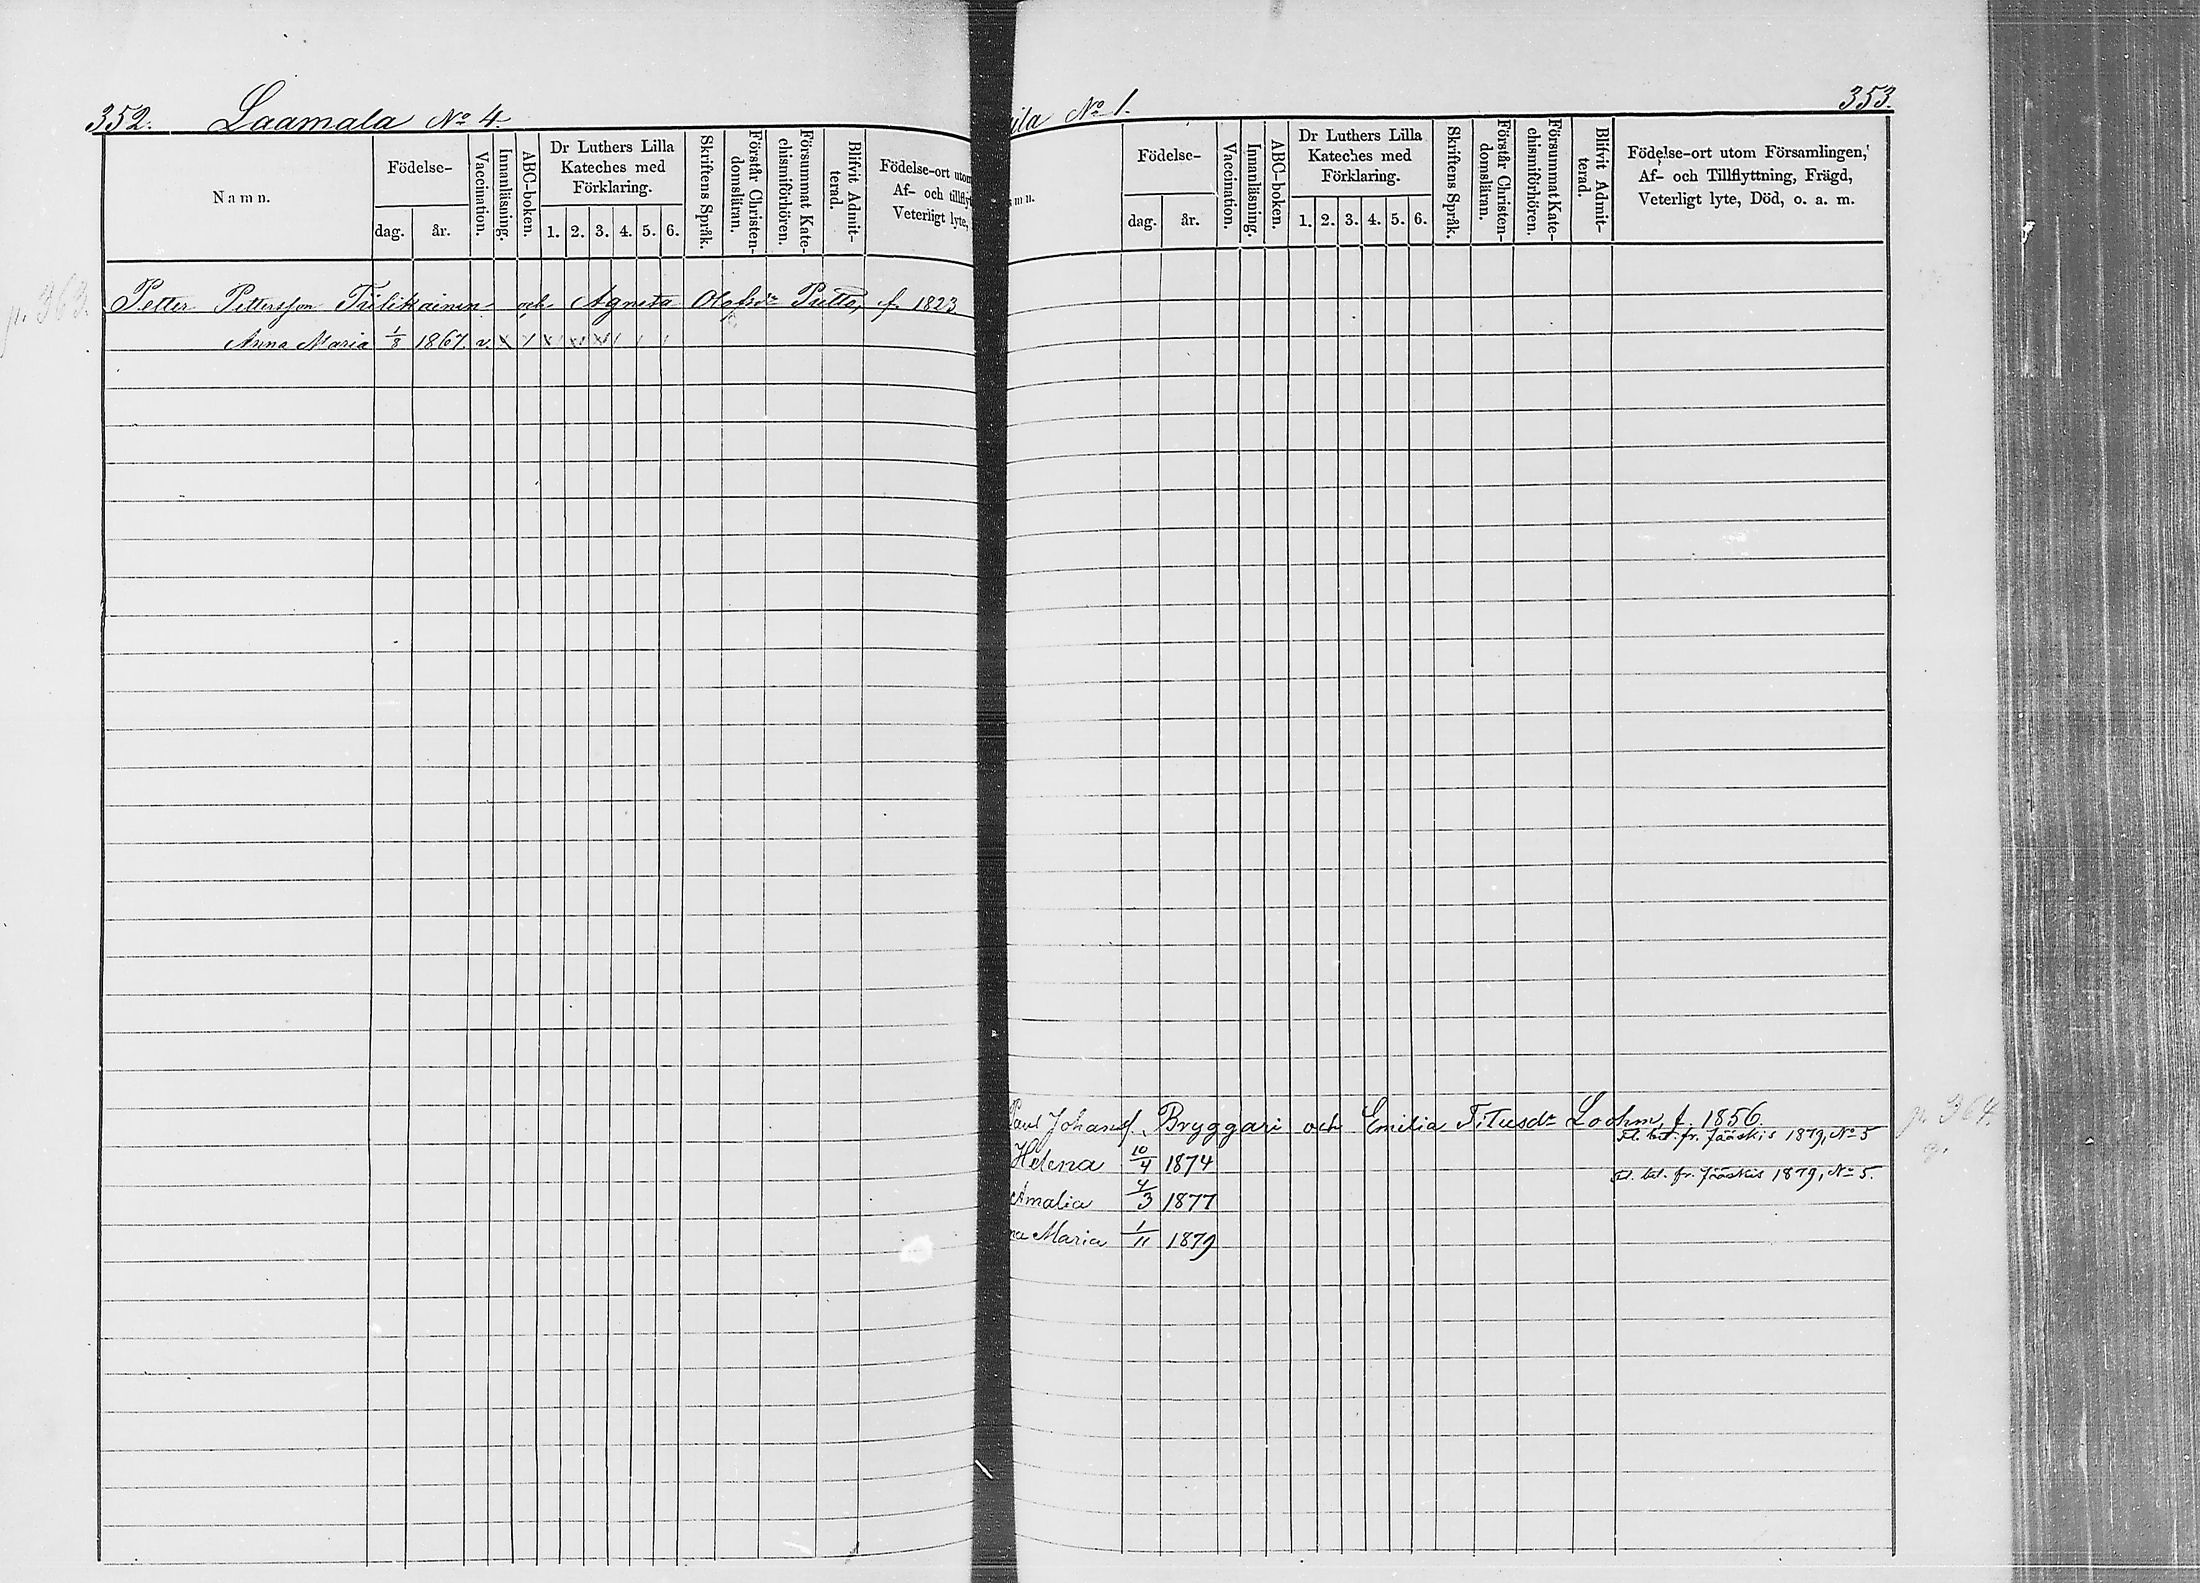 352. Laamala No 4.
Namn.
Födelse-
dag.
år.
Vaccination.
Innanläsning.
ABC-boken.
Dr Luthers Lilla
Kateches med
Förklaring.
1. 2. 3. 4. 5. 6.
Skriftens Språk.
Förstår Christen-
domsläran.
Försummat Kate-
chismiförhören.
Blifvit Admit-
terad.
Födelse-ort utom
Af- och tillfly
Veterligt lyte,
p. 363.
Petter Pettersson och Agneta Olofsdr f. 1823
Anna Maria 1/8 1867. v.
ila No 1. 353.
mn.
Födelse-
dag.
år.
Vaccination.
Innanläsning.
ABC-boken.
Dr Luthers Lilla
Kateches med
Förklaring.
1. 2. 3. 4. 5. 6.
Skriftens Språk.
Förstår Christen-
domsläran.
Försummat Kate-
chismiförhören.
Blifvit Admit-
terad.
Födelse-ort utom Församlingen,
Af- och Tillflyttning, Frägd,
Veterligt lyte, Död, o. a. m.
Paul Johanss. Bryggari och Emilia Titusdr Loohm, f. 1856.
p. 364.
bet. fr. Jääskis 1879, No 5
Helena 10/4 1874
bet. fr. Jääskis 1879, No 5.
Amalia 4/3 1877
na Maria 1/11 1879